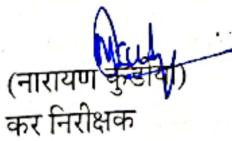 (नारायण कुडायी)
कर निरीक्षक